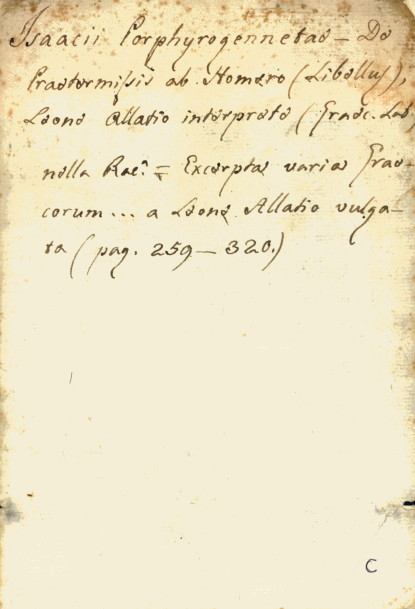 Isaacii Porphyrogennetae – De
Praetermissis ab Homero (Libellus),
Leone Allatio interprete (Graec. Lat
nella Rac.ª = Excerpta varia Grae-
corum... a Leone Allatio vulga-
ta (pag. 259 – 320.)
C